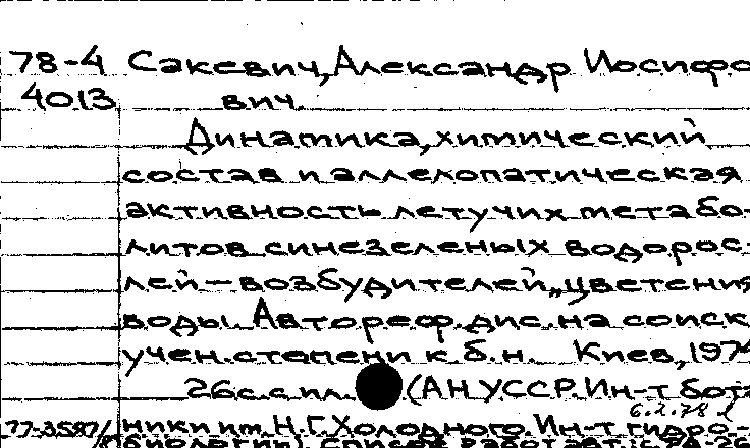 78-4 Сакевич, Александр Иосифо
4013 вич.
Динамика, химический
состав и аллелопатическая
активность летучих метабо-
литов синезеленых водорос-
лей – возбудителей „цветения
воды. Автореф. дис. на соиск.
учен. степени к. б. н. Киев, 197
26 с. с ил. (АН УССР. Ин-т бота
6.2.78
77-3587 ники им. Н. Г. Холодного. Ин-т гидро-
биологии) Список работ авт.: с.